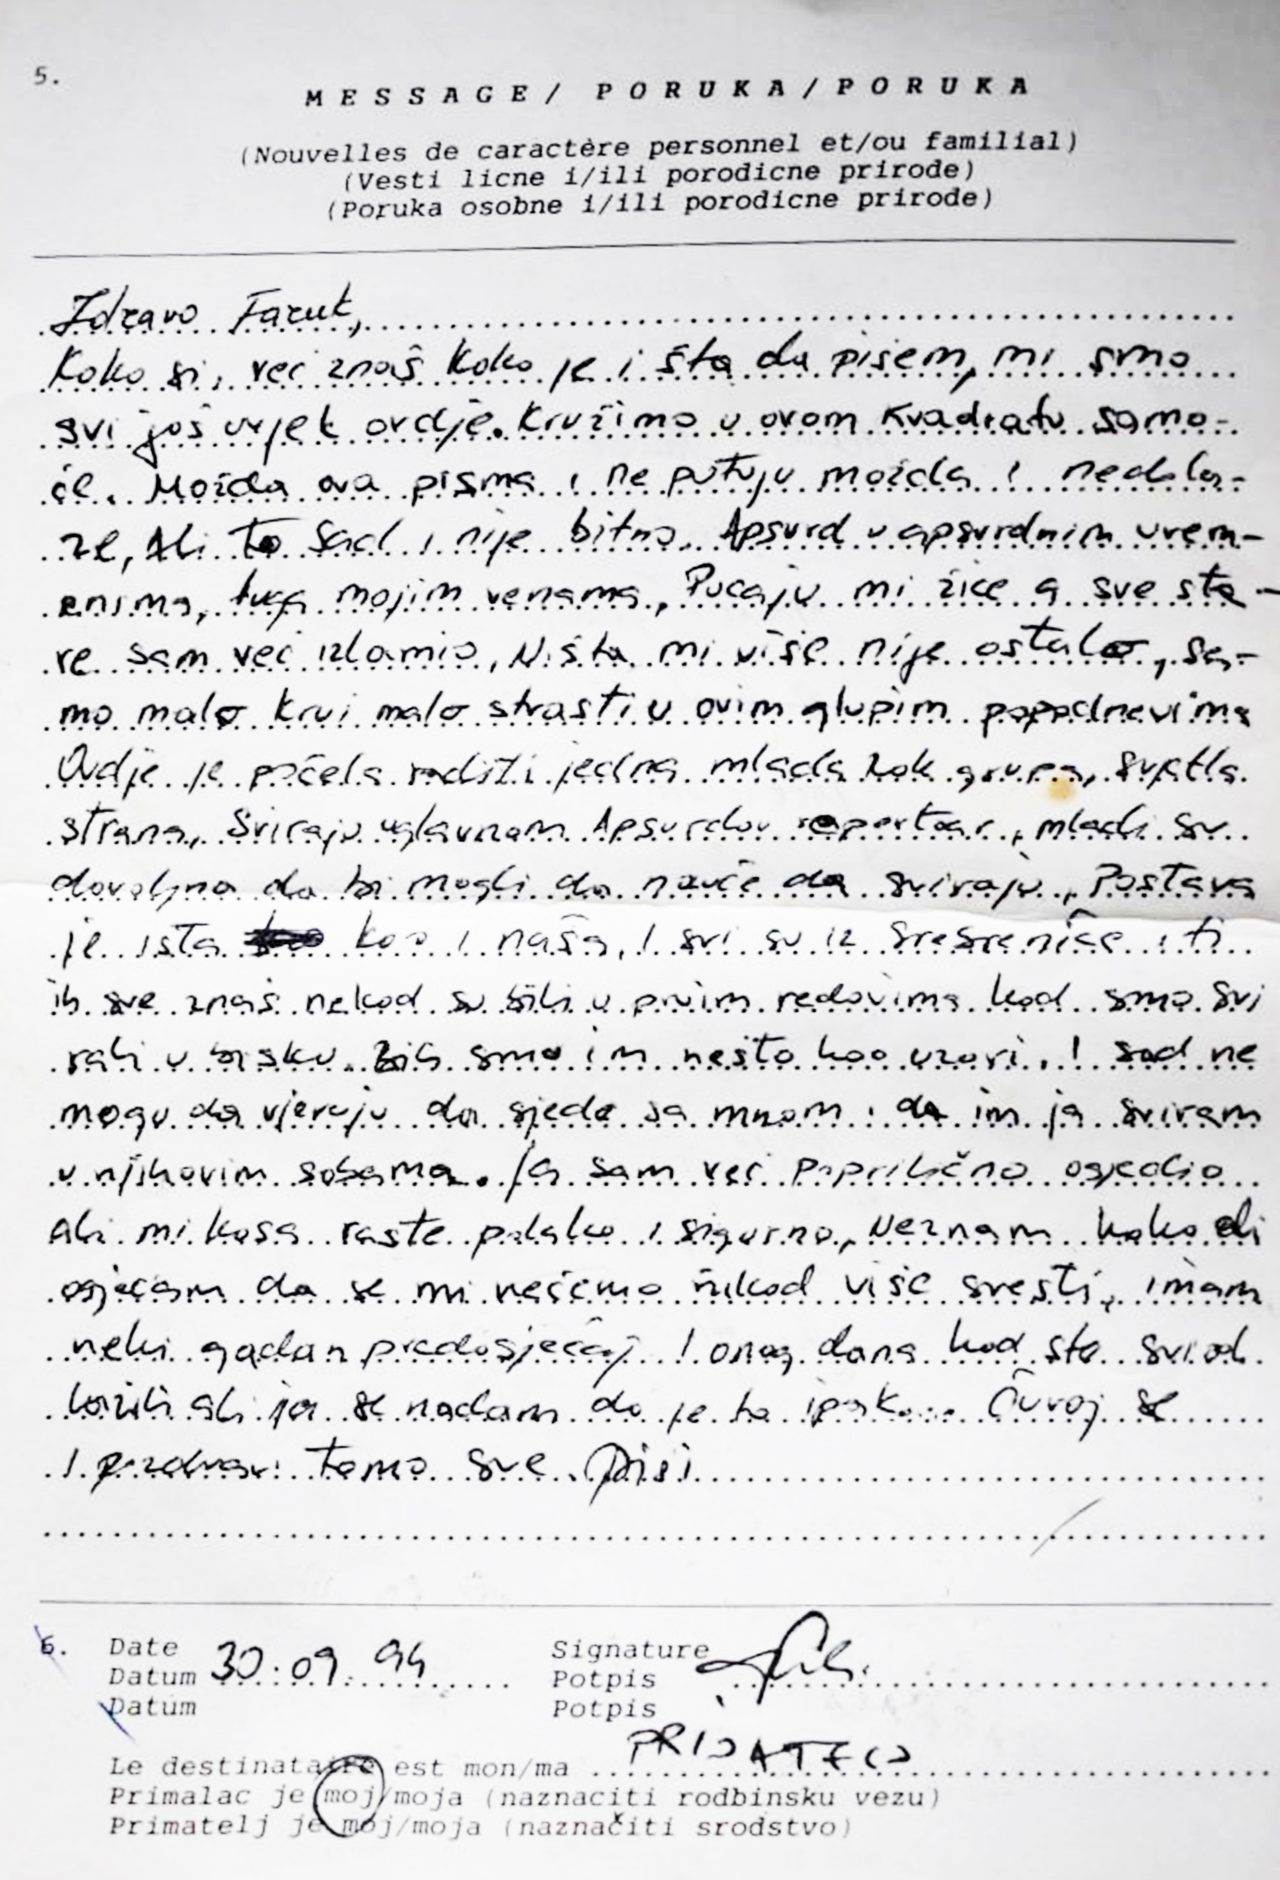 5.
MESSAGE/ PORUKA/PORUKA
(Nouvelles de caractère personnel et/ou familial)
(Vesti licne i/ili porodicne prirode)
(Poruka osobne i/ili porodicne prirode)
Zdravo Faruk,
Kako si, već znaš kako je i šta da pisem, mi smo
svi još uvjek ovdje. Kružimo u ovom kvadratu samo-
će. Možda ova pisma i ne putuju možda i nedola-
ze, Ali to sad i nije bitno. Apsurd u apsurdnim vrem-
enima, tuga mojim venama, Pucaju mi žice a sve sta-
re sam već izlomio, Ništa mi više nije ostalo, sa-
mo malo krvi malo strasti u ovim glupim popodnevima
Ovdje je počela raditi jedna mlada Rok grupa, svjetla
strana, Sviraju uglavnom Apsurdov repertoar, mladi su
dovoljno da bi mogli da nauče da sviraju, Postava
je ista kao i naša, I svi su iz Srebrenice i ti
ih sve znaš nekad su bili u prvim redovima kad smo svi
rali u disku. Bili smo im nešto kao uzori. I sad ne
mogu da vjeruju da sjede sa mnom i da im ja sviram
u njihovim sobama. Ja sam već poprilično osjedio
ali mi kosa raste polako i sigurno, Neznam kako ali
osjećam da se mi nećemo nikad više sresti, imam
neki gadan predosjećaj I onog dana kad ste svi od
lazili ali ja se nadam da je to ipak... Čuvaj se
I pozdravi tamo sve. Piši
6.
Date
Datum 30.09.94
Datum
Signature
Potpis
Potpis
Le destinataire est mon/ma PRIJATELJ
Primalac je moj/moja (naznaciti rodbinsku vezu)
Primatelj je moj/moja (naznačiti srodstvo)